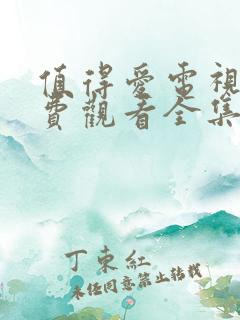 值得爱電視
費觀看全集
丁東紅
未经同意禁止转载